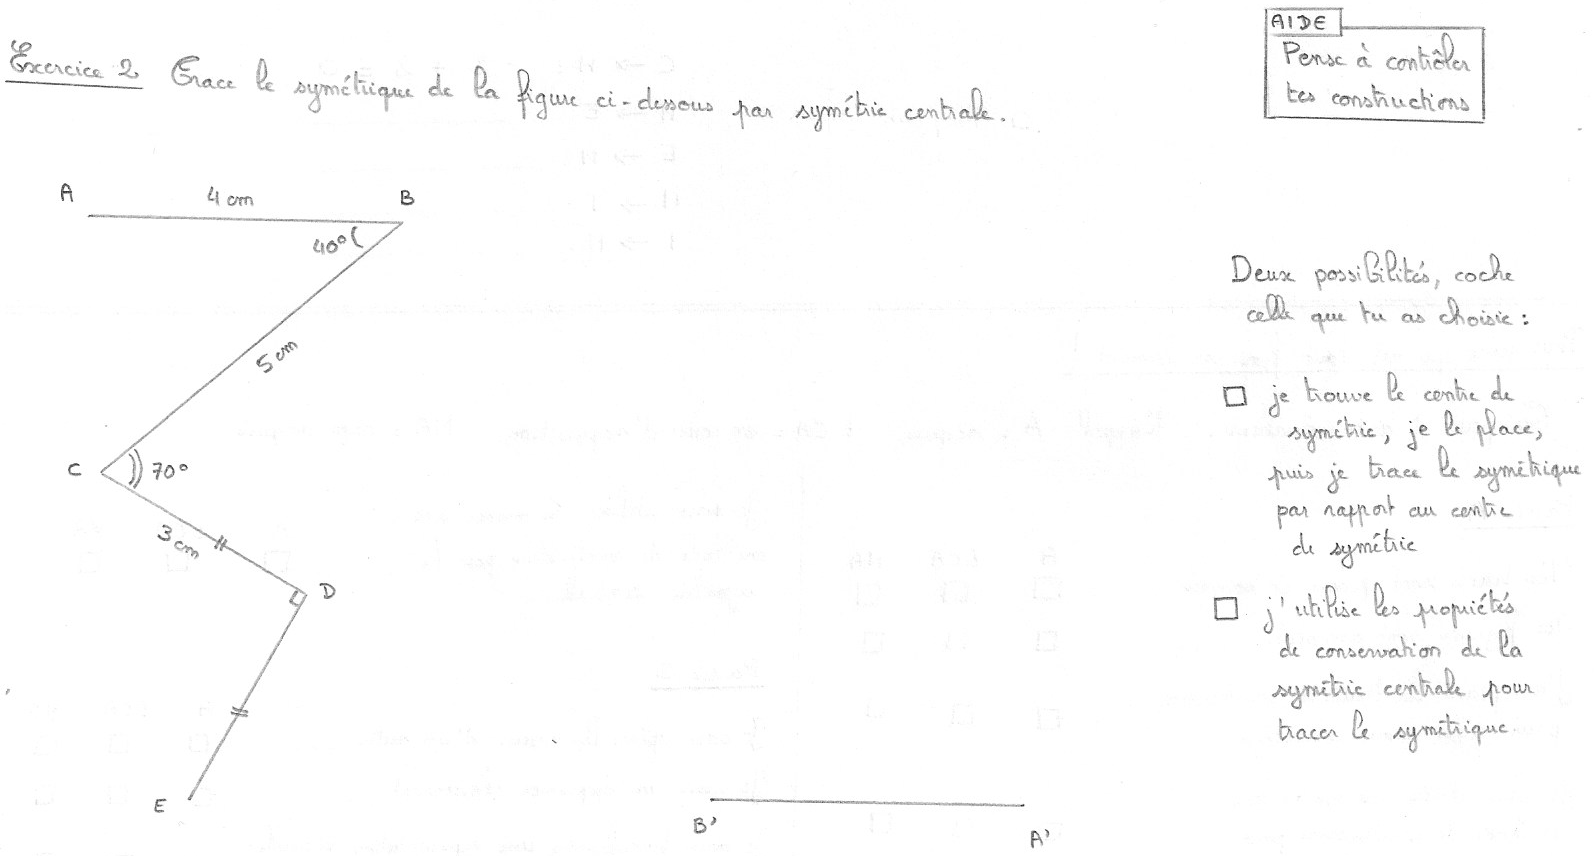 Exercice 2 Trace le symétrique de la figure ci-dessous par symétrie centrale.
AIDE
Pense à contrôler
tes constructions
A 4 cm B
40°
5 cm
C 70°
3 cm
D
E
B'
A'
Deux possibilités, coche
celle que tu as choisie :
je trouve le centre de
symétrie, je le place,
puis je trace le symétrique
par rapport au centre
de symétrie
j'utilise les propriétés
de conservation de la
symétrie centrale pour
tracer le symétrique.